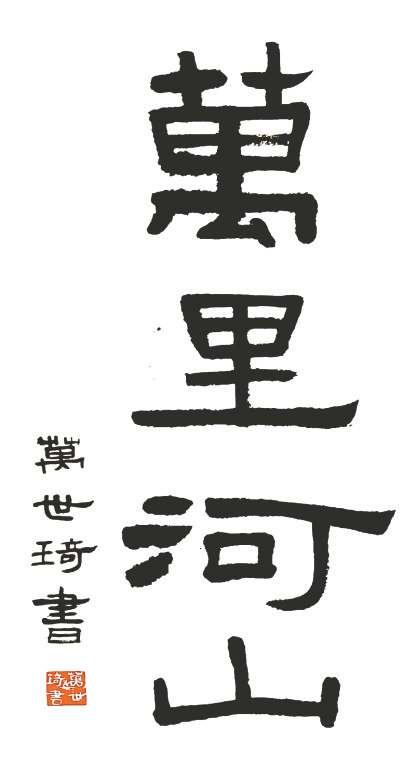 萬里河山
萬世琦書
萬世琦書